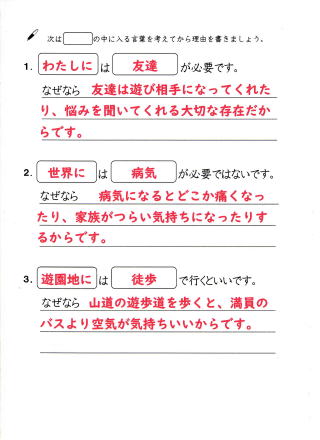 次は の中に入る言葉を考えてから理由を書きましょう。
1. わたしに は 友達 が必要です。
なぜなら 友達は遊び相手になってくれた
り、悩みを聞いてくれる大切な存在だか
らです。
2. 世界に は 病気 が必要ではないです。
なぜなら 病気になるとどこか痛くなっ
たり、家族がつらい気持ちになったりす
るからです。
3. 遊園地に は 徒歩 で行くといいです。
なぜなら 山道の遊歩道を歩くと、満員の
バスより空気が気持ちいいからです。